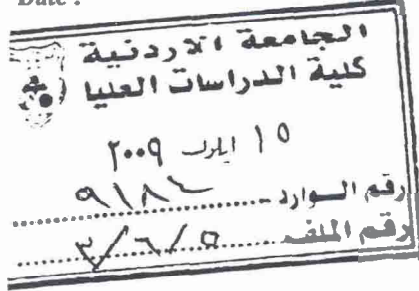 Date :
الجامعة الاردنية
كلية الدراسات العليا
١٥ ايلول ٢٠٠٩
رقم الوارد ٩١٨٤
رقم الملف ٣/٦/٥